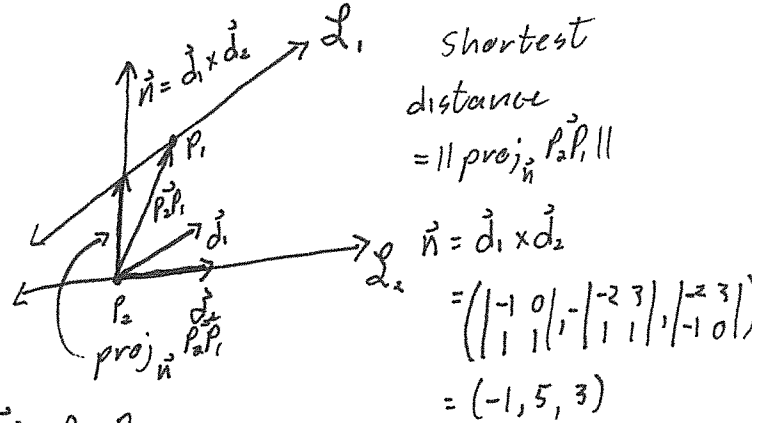 ℒ₁
n⃗ = d⃗₁ × d⃗₂
P₁
P₂P₁⃗
d⃗₁
ℒ₂
P₂
d⃗₂
proj_n⃗ P₂P₁⃗
Shortest
distance
= || proj_n⃗ P₂P₁⃗ ||
n⃗ = d⃗₁ × d⃗₂
= ( |-1 0; 1 1|, -|-2 3; 1 1|, |-2 3; -1 0| )
= (-1, 5, 3)